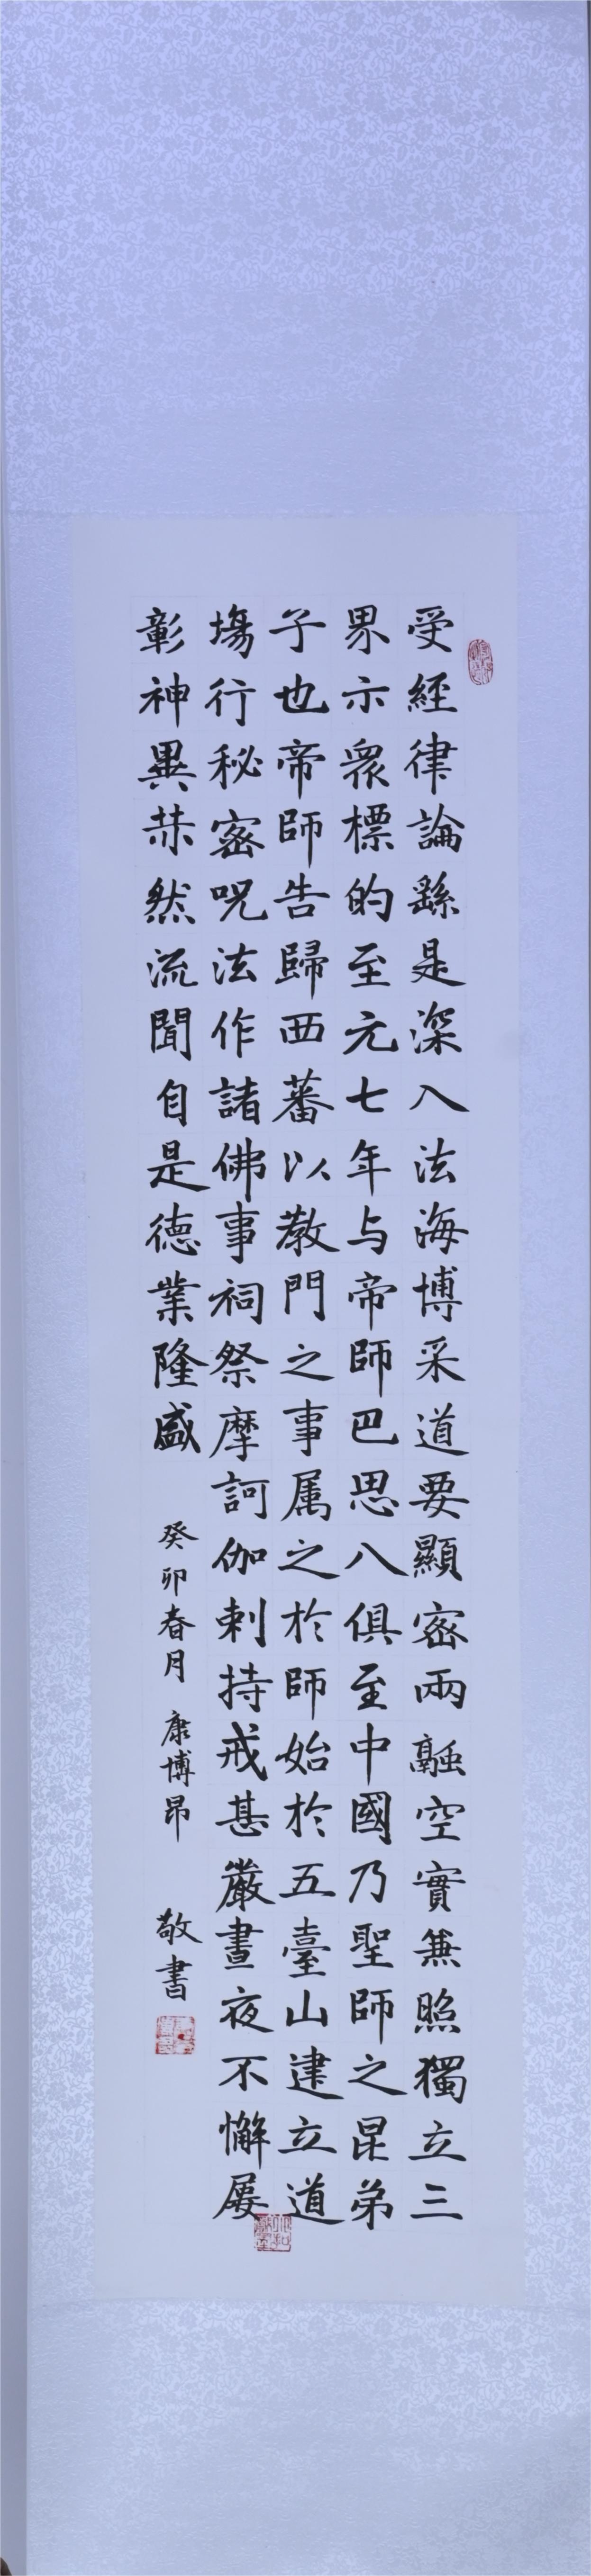 受經律論繇是深入法海博采道要顯密兩融空實兼照獨立三
界示衆標的至元七年与帝師巴思八俱至中國乃聖師之昆弟
子也帝師告歸西蕃以教門之事属之於師始於五臺山建立道
塲行秘密呪法作諸佛事祠祭摩訶伽剌持戒甚嚴晝夜不懈屡
彰神異赫然流聞自是德業隆盛
癸卯春月 康博昂 敬書